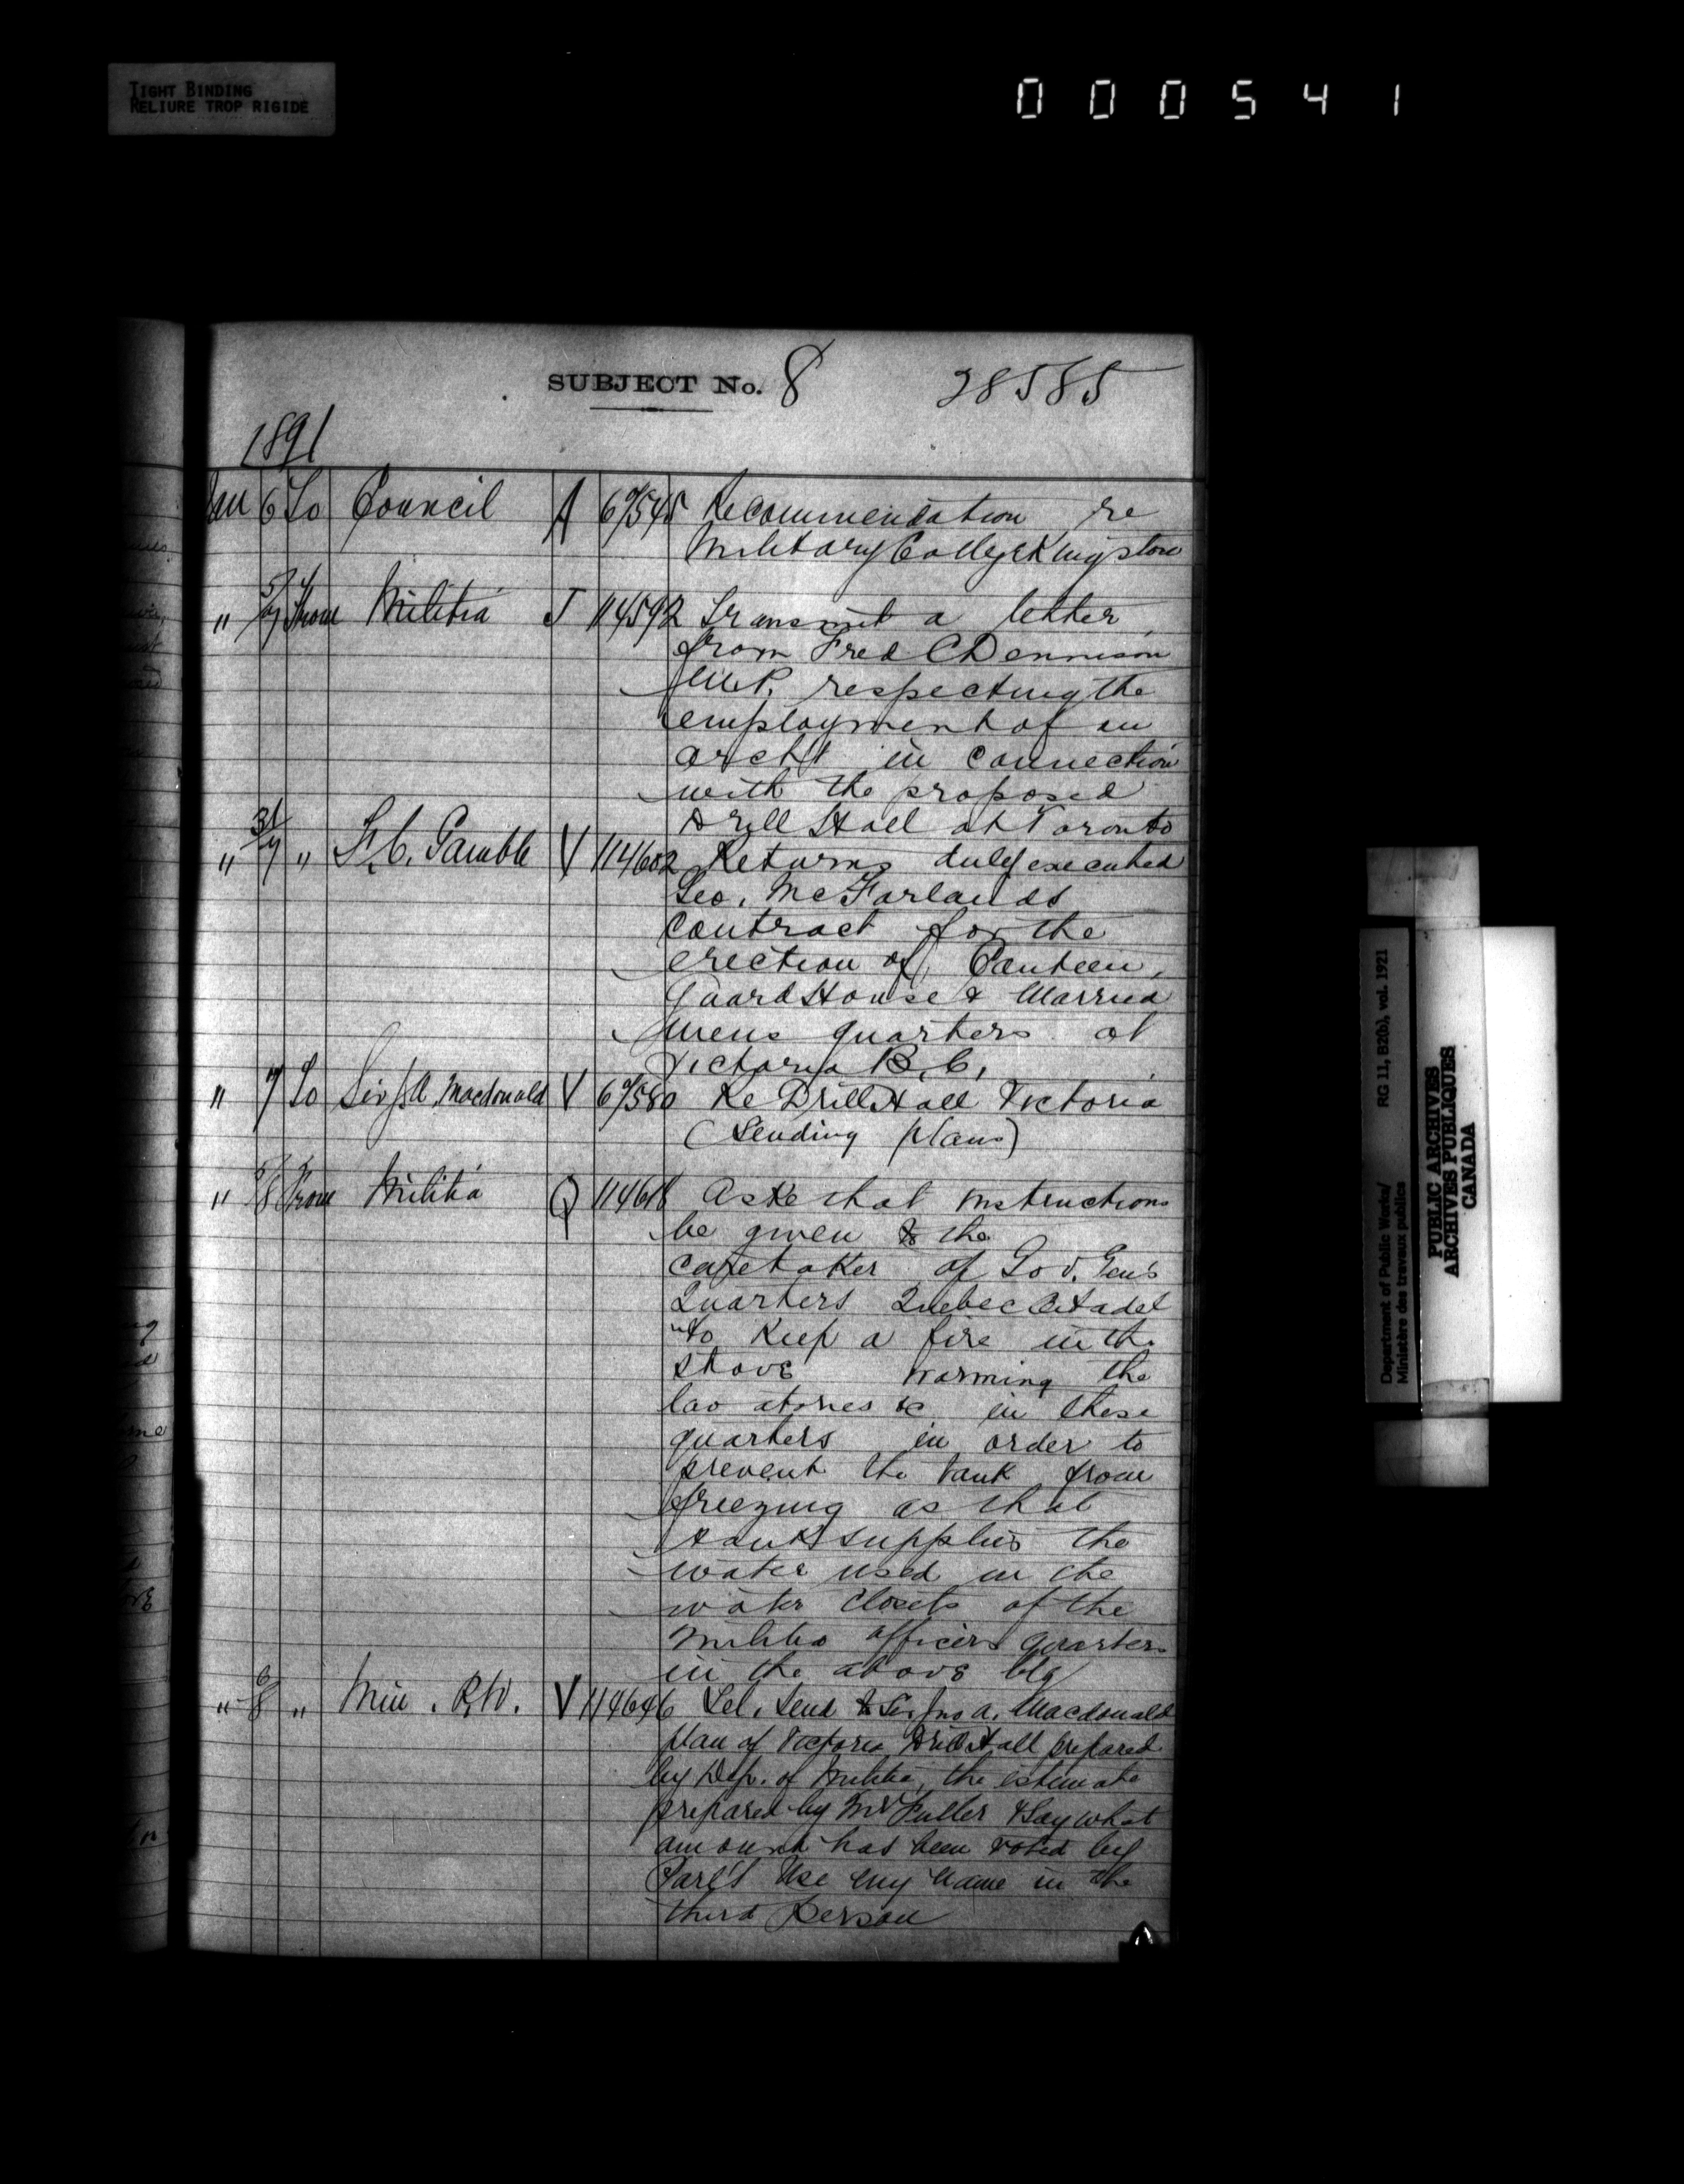 TIGHT BINDING
RELIURE TROP RIGIDE
000541
SUBJECT No. 8 28585
1891
Jan 6 To Council A 69545 Recommendation re
Military College Kingston
" 5/7 From Militia J 114592 Transmit a letter
from Fred C Dennison
M.P. respecting the
employment of an
archt in connection
with the proposed
Drill Hall at Toronto
" 31/7 " F.C. Gamble V 114602 Returns duly executed
Geo. McFarlands
contract for the
erection of Canteen,
Guard House & Married
mens quarters at
Victoria B.C.
" 7 To Sir J.A. Macdonald V 69580 Re Drill Hall Victoria
(Sending plans)
" 5/8 From Militia Q 114618 Asks that instructions
be given to the
caretaker of Gov. Gen's
Quarters Quebec Citadel
to keep a fire in the
stove warming the
lavatories &c in these
quarters in order to
prevent the tank from
freezing as that
tank supplies the
water used in the
water closets of the
militia officers quarters
in the above bldg
" 6/8 " Min. P.W. V 114646 Tel. Send to Sir Jno A. Macdonald
plan of Victoria Drill Hall prepared
by Dep. of Militia, the estimate
prepared by Mr Fuller & Say what
amount has been voted by
Parl't Use my name in the
third Person
Department of Public Works/ RG 11, B2(b), vol. 1921
Ministère des travaux publics
PUBLIC ARCHIVES
ARCHIVES PUBLIQUES
CANADA